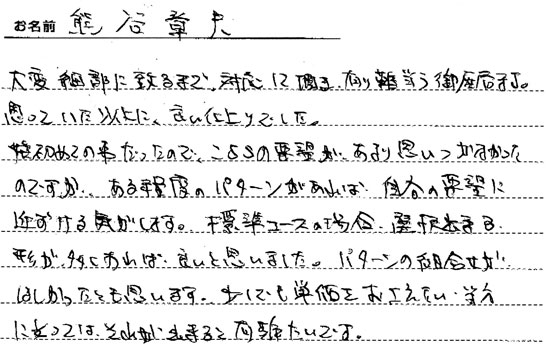 お名前 熊谷章夫
大変細部に致るまで、対応して頂き有り難う御座居ます。
思っていた以上に、良い仕上りでした。
初めての事だったので、こちらの要望が、あまり思いつかなかった
のですが、ある程度のパターンがあれば、自分の要望に
近ずける気がします。標準コースの場合、選択出きる
形が、多くあれば、良いと思いました。パターンの組合せが
ほしかったとも思います。少しでも単価をおさえたい
によっては、それが出きると有難たいです。